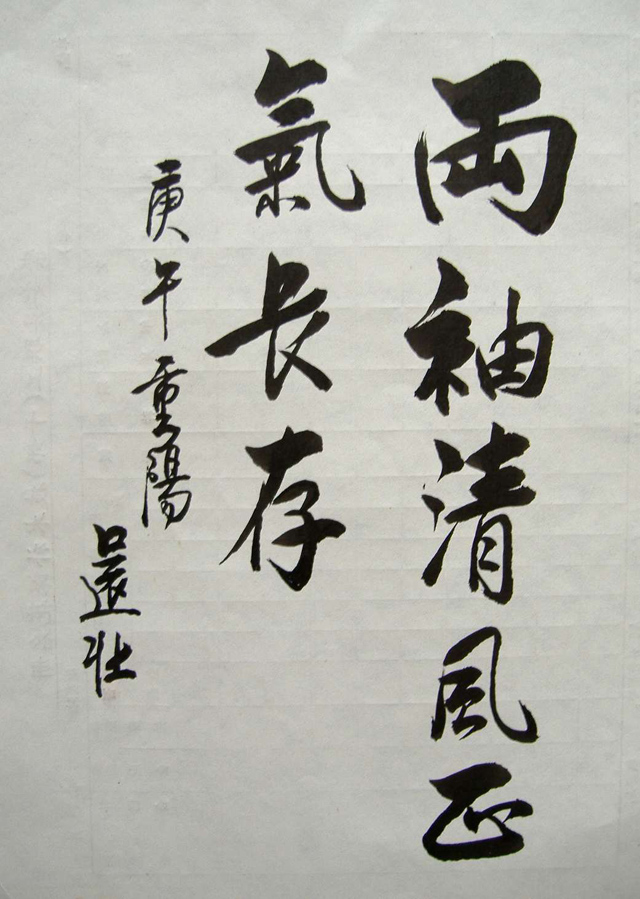 両袖清風正
氣長存
庚午重陽
還壯